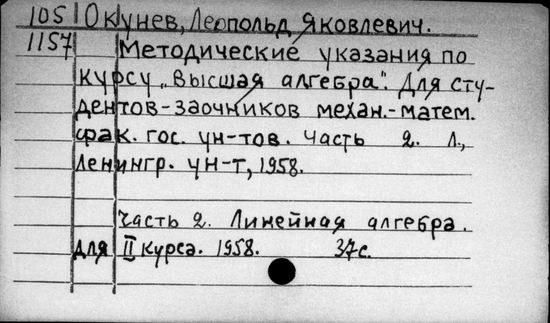 105 Окунев, Леопольд Яковлевич.
1157 Методические указания по
курсу „Высшая алгебра". Для сту-
дентов-заочников механ.-матем.
фак. гос. ун-тов. Часть 2. Л.,
Ленингр. ун-т, 1958.
Часть 2. Линейная алгебра.
Для II курса. 1958. 37с.